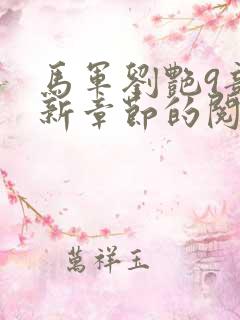 馬軍劉艷9章
新章節的閱
萬祥玉